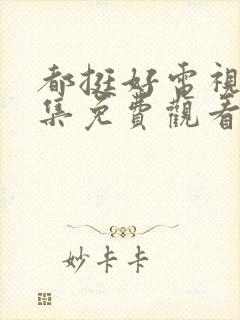 都挺好電視
集免費觀看
妙卡卡